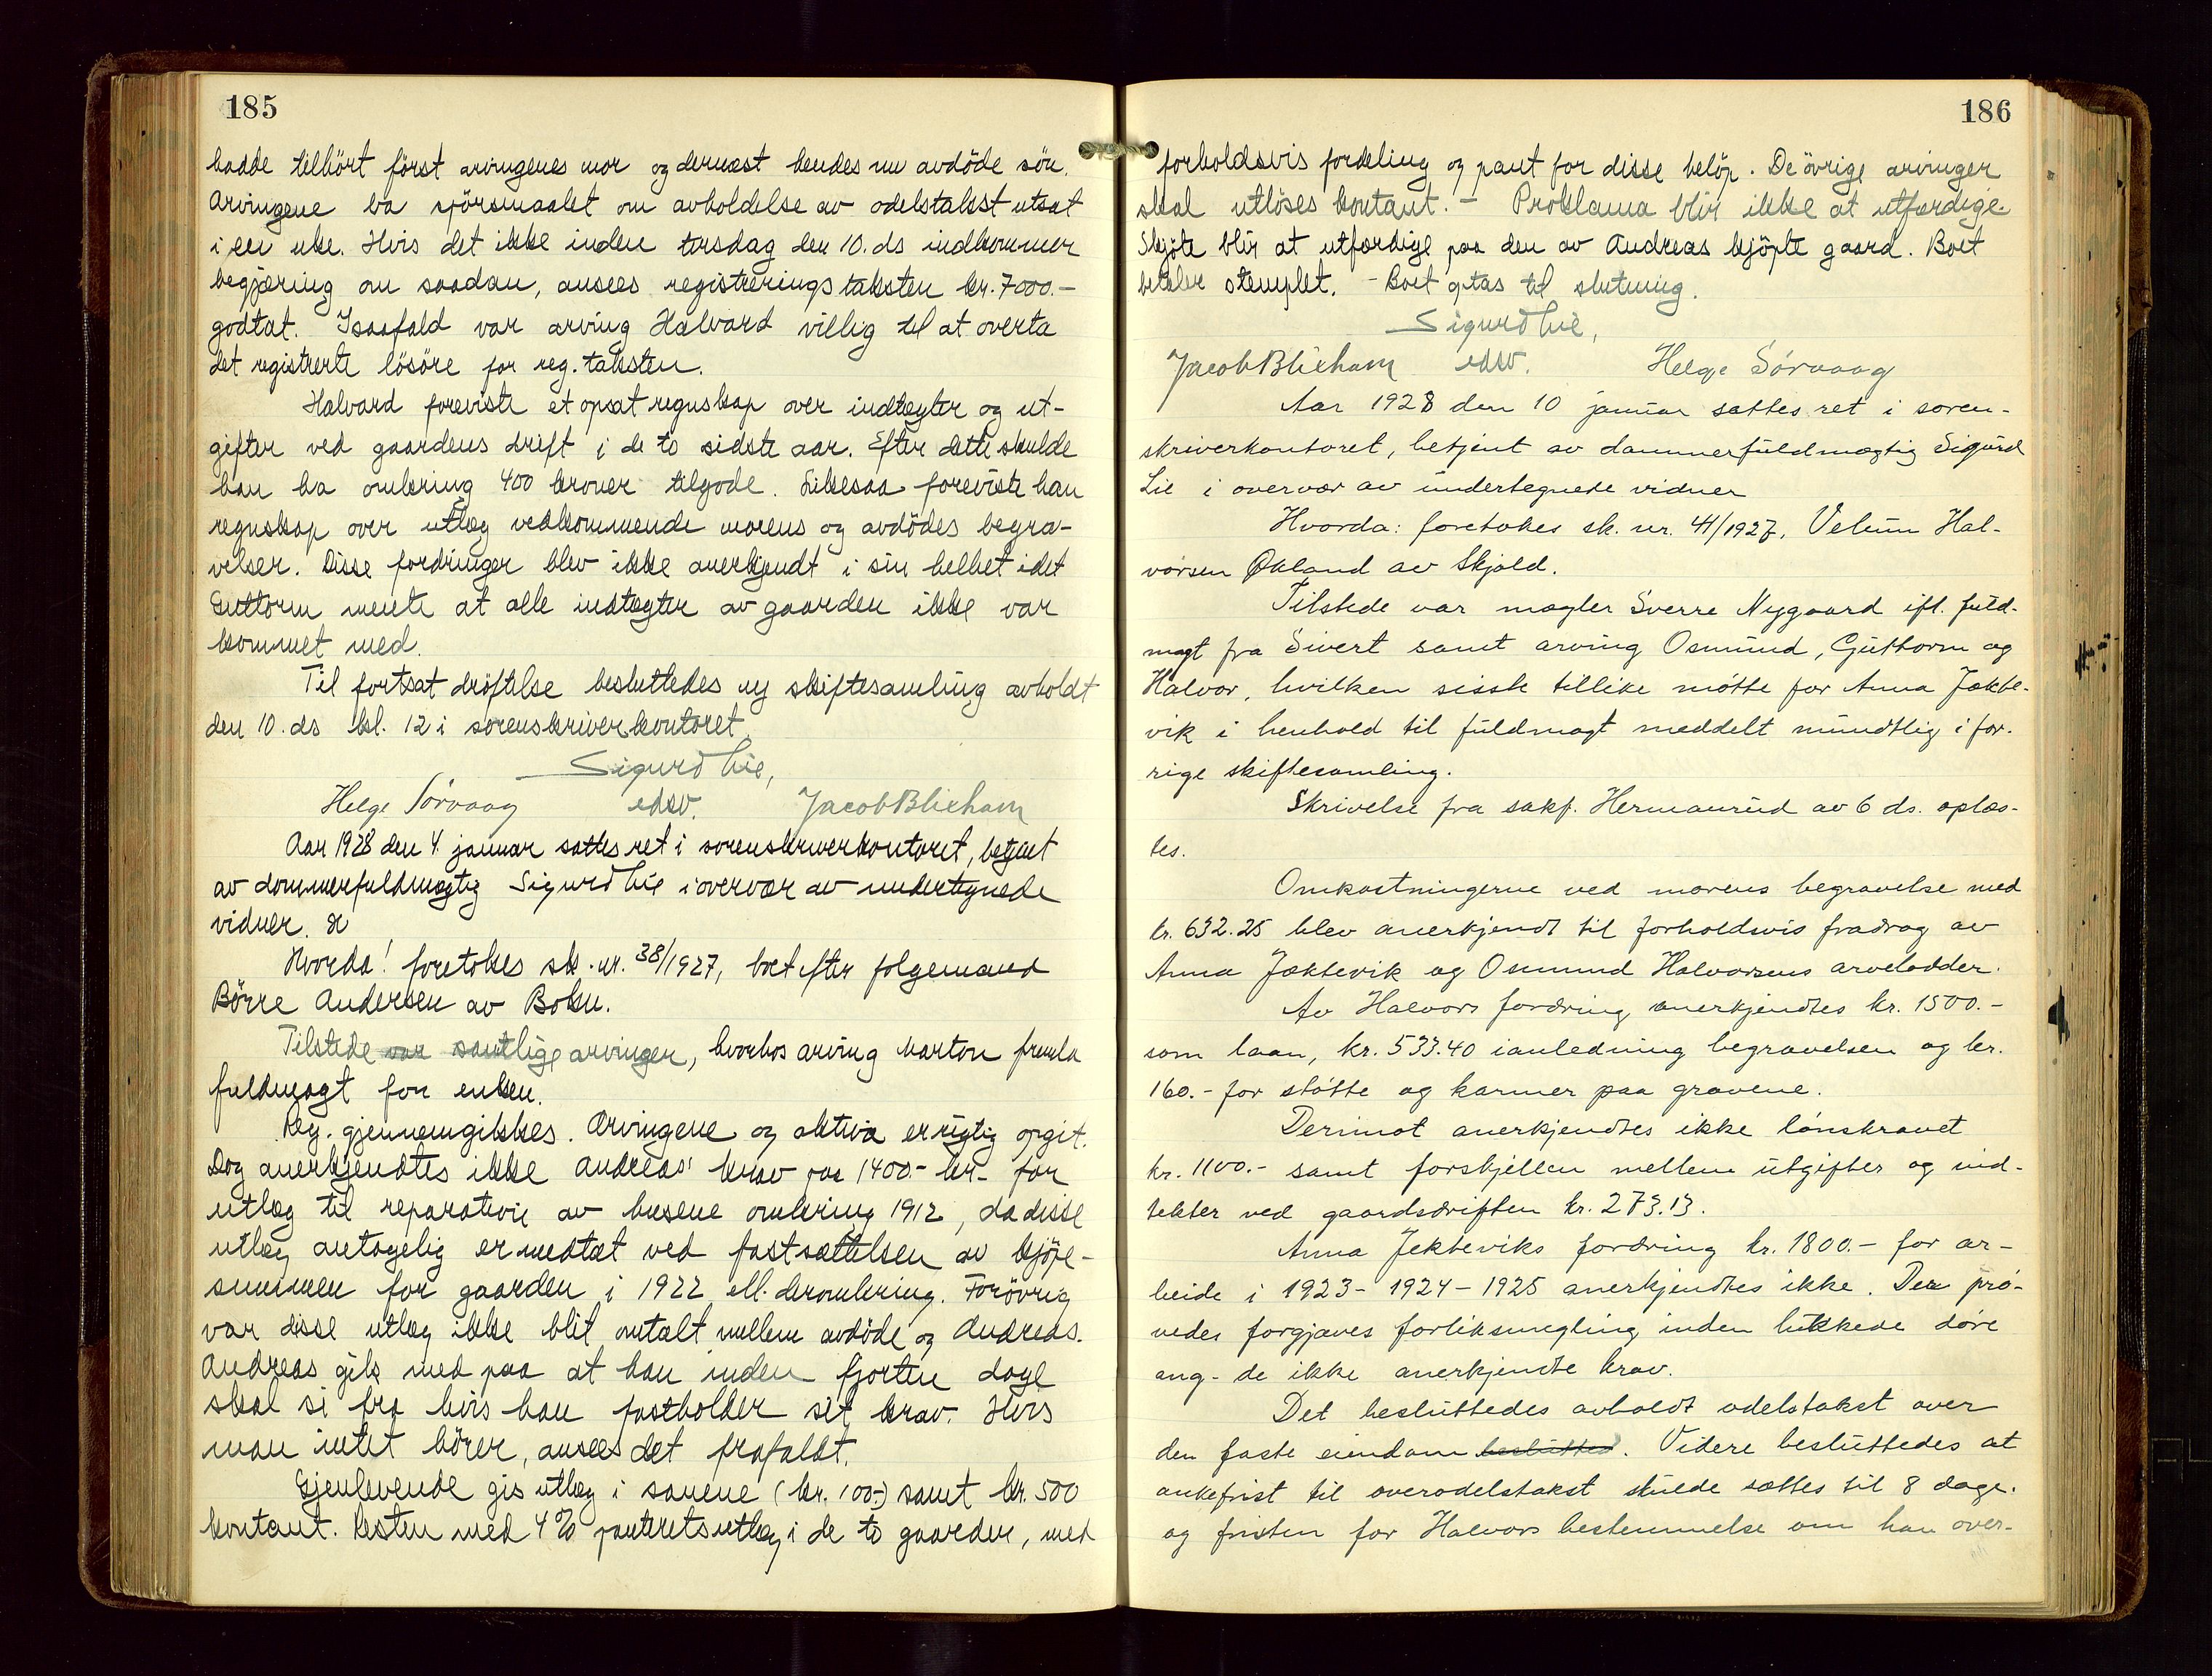 185
hadde tilhört först arvingenes mor og dernæst hendes nu avdöde sön.
Arvingene ba spörsmaalet om avholdelse av odelstakst utsat
i een uke. Hvis det ikke inden tirsdag den 10. ds indkommer
begjæring om saadan, ansees registreringstaksten kr. 7000.-
godtat. Isaafald var arving Halvard villig til at overta
det registrerte lösöre for reg. taksten.
Halvard foreviste et opsat regnskap over indtægter og ut-
gifter ved gaardens drift i de to sidste aar. Efter dette skulde
han ha omkring 400 kroner tilgode. Likesaa foreviste han
regnskap over utlæg vedkommende morens og avdödes begra-
velser. Disse fordringer blev ikke anerkjendt i sin helhet idet
Guttorm mente at alle indtægter av gaarden ikke var
kommet med.
Til fortsat dröftelse besluttedes ny skiftesamling avholdt
den 10. ds kl. 12 i sorenskriverkontoret.
Sigurd Lie,
Helge Sørvaag edsv. Jacob Blixhavn
Aar 1928 den 4. januar sattes ret i sorenskriverkontoret, betjent
av dommerfuldmægtig Sigurd Lie i overvær av undertegnede
vidner.
Hvorda! foretokes sk. nr. 38/1927, boet efter folgemand
Börre Andersen av Bokn.
Tilstede var samtlige arvinger, hvorhos arving Marton fremla
fuldmagt fra enken.
Reg. gjennemgikkes. Arvingene og aktiva er rigtig opgit.
Dog anerkjendtes ikke Andreas' krav paa 1400.- kr. for
utlæg til reparation av husene omkring 1912, da disse
utlæg antagelig er medtat ved fastsættelsen av kjöpe-
summen for gaarden i 1922 ell. deromkring. Forövrig
var disse utlæg ikke blit omtalt mellem avdöde og Andreas.
Andreas gik med paa at han inden fjorten dage
skal si fra hvis han fastholder sit krav. Hvis
man intet hörer, ansees det frafaldt.
Gjenlevende gis utlæg i sauene (kr. 100.-) samt kr. 500
kontant. Resten med 4% panteretsutlæg i de to gaarder, med
186
forholdsvis fordeling og pant for disse belöp. De övrige arvinger
skal utlöses kontant. - Proklama blir ikke at utfærdige.
Skjöte blir at utfærdige paa den av Andreas kjöpte gaard. Boet
betaler stemplet. - Boet optas til slutning.
Sigurd Lie,
Jacob Blixhavn edsv. Helge Sørvaag
Aar 1928 den 10 januar sattes ret i soren-
skriverkontoret, betjent av dommerfuldmægtig Sigurd
Lie i overvær av undertegnede vidner
Hvorda: foretokes sk. nr. 44/1927, Velum Hal-
vorsen Økland av Skjold.
Tilstede var mægler Sverre Nygaard ifl. fuld-
magt fra Sivert samt arving Osmund, Guttorm og
Halvor, hvilken sisste tillike møtte for Anna Jækte-
vik i henhold til fuldmagt meddelt mundtlig i for-
rige skiftesamling.
Skrivelse fra sakf. Hermanrud av 6 ds. oplæs-
tes.
Omkostningerne ved morens begravelse med
kr. 632.25 blev anerkjendt til forholdsvis fradrag av
Anna Jæktevik og Osmund Halvorsens arvelodder.
Av Halvors fordring anerkjendtes kr. 1500.-
som laan, kr. 533.40 ianledning begravelsen og kr.
160.- for støtte og karmer paa gravene.
Derimot anerkjendtes ikke lønskravet
kr. 1100.- samt forskjellen mellem utgifter og ind-
tekter ved gaardsdriften kr. 273.13.
Anna Jekteviks fordring kr. 1800.- for ar-
beide i 1923- 1924 - 1925 anerkjendtes ikke. Der prø-
vedes forgjæves forliksmegling inden lukkede døre
ang. de ikke anerkjendte krav.
Det besluttedes avholdt odelstakst over
den faste eiendom besluttes. Videre besluttedes at
ankefrist til overodelstakst skulde sættes til 8 dage.
og fristen for Halvors bestemmelse om han over-